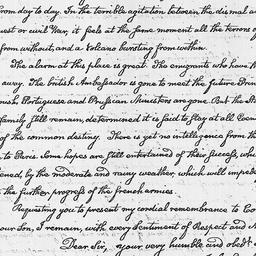 from day to day. In the terrible agitation between the dismal a
uest or civil War, it feels at the same moment all the terrors o
from without, and a Volcano bursting from within.
The alarm at this place is great. The emigrants who have
away. The british Ambassador is gone to meet the future Prin
Portuguese and Prussian Ministers are gone. But the
family still remain, determined it is said to stay at all Even
of the common destiny. There is yet no intelligence from th
to Paris. Some hopes are still entertained of their success, wh
ened, by the moderate and rainy weather, which will imped
the further progress of the french armies.
Requesting you to present my cordial remembrance to Co
our Son, I remain, with every Sentiment of Respect and
Dear Sir, your very humble and obedt